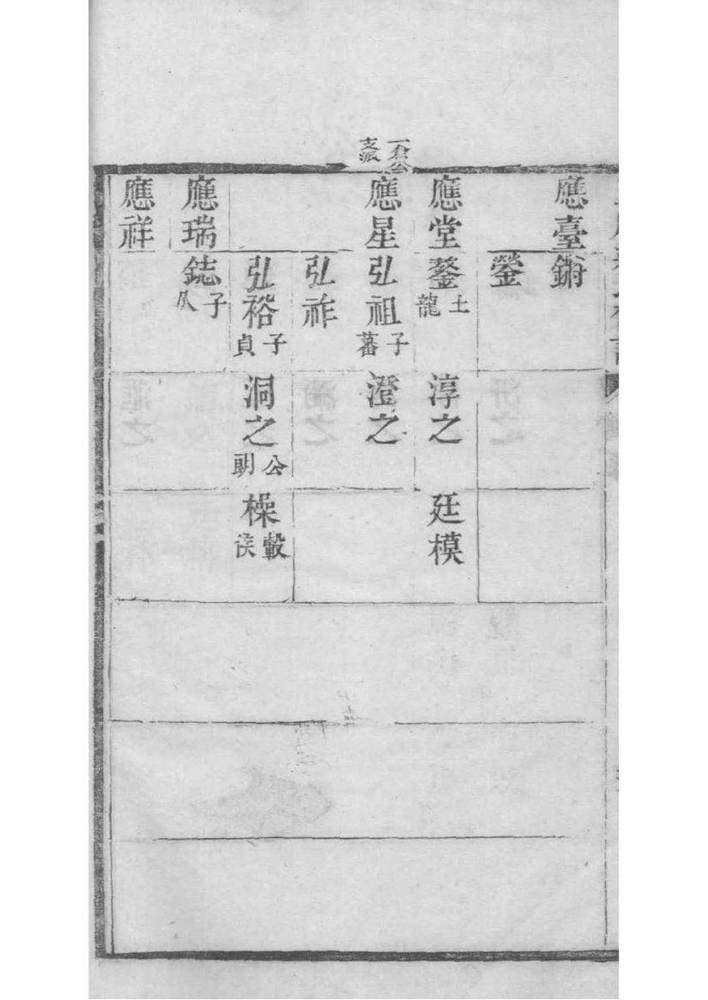 應臺 鏘
鎣
應堂 鏊 士龍 淳之 廷模
一倉公支派
應星 弘祖 子蕃 澄之
弘祚
弘裕 子貞 洞之 公明 橾 轂侯
應瑞 鋕 子
應祥